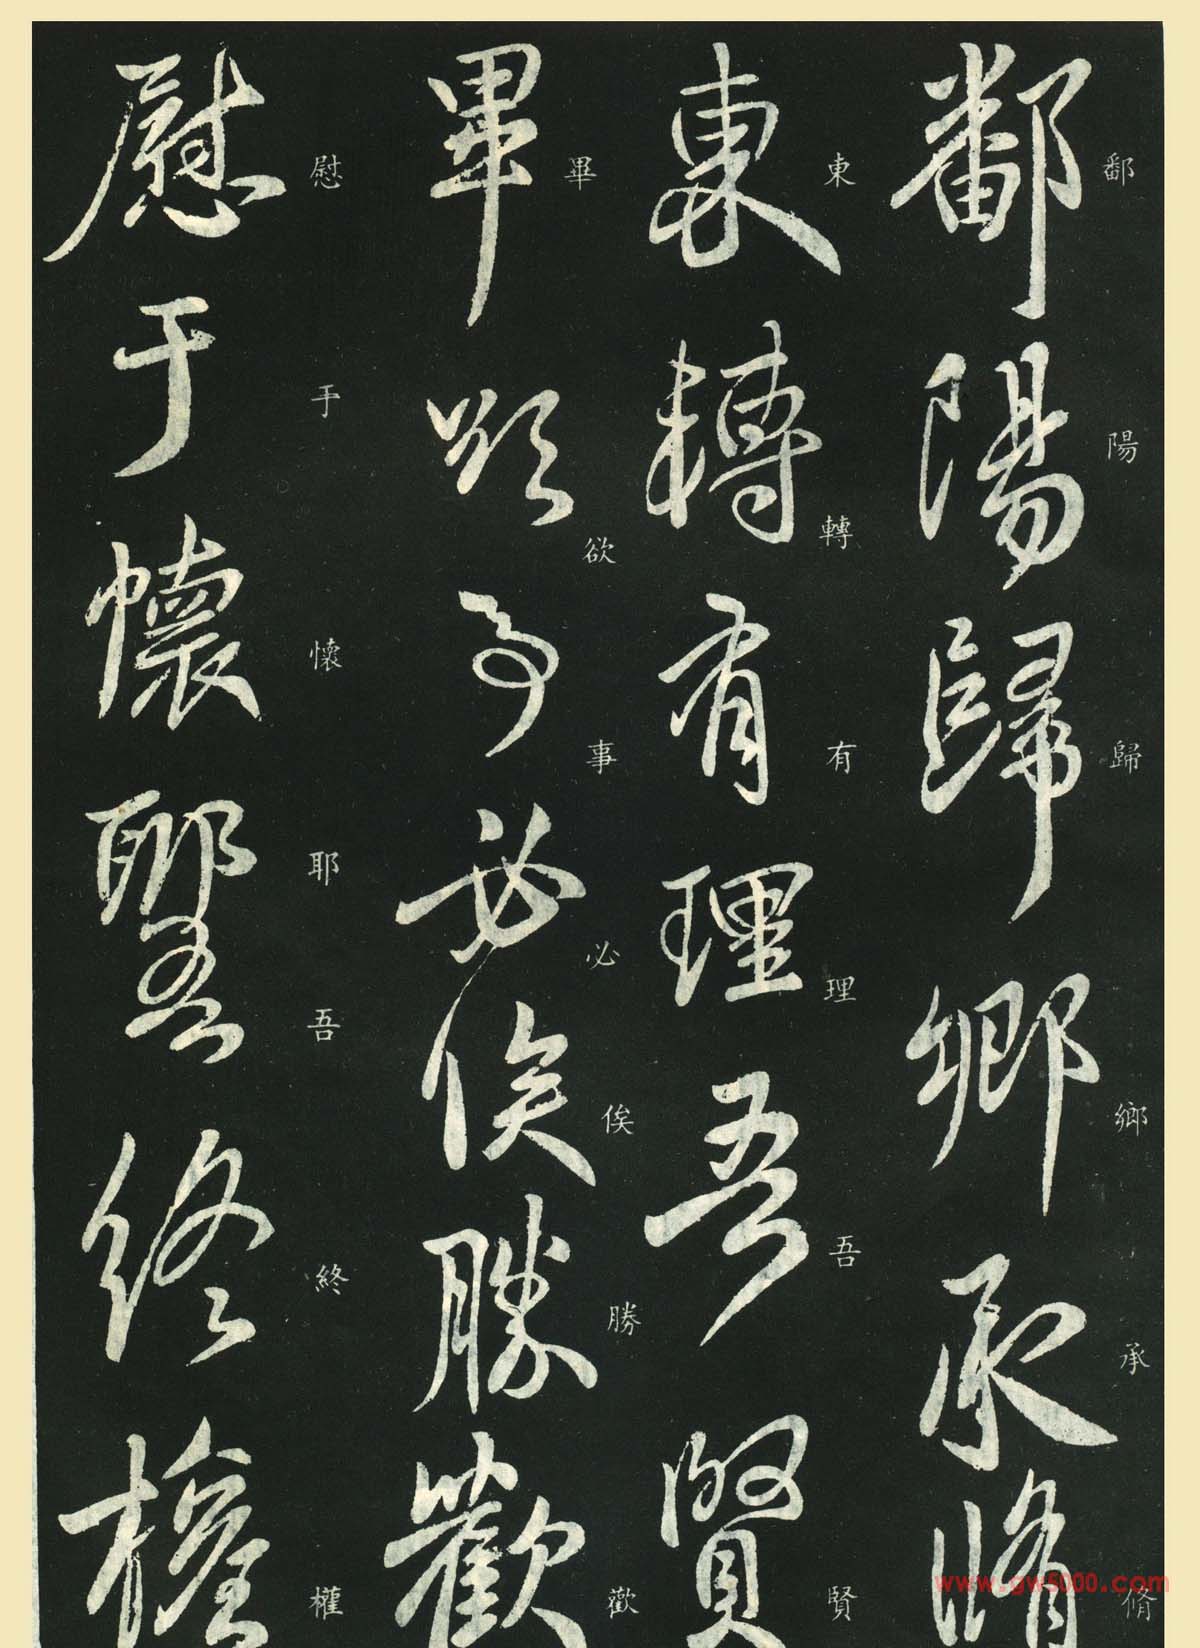 鄱陽歸鄉承脩
東轉有理吾賢
畢欲事必俟勝歡
慰于懷耶吾終權
鄱陽歸鄉承脩
東轉有理吾賢
畢欲事必俟勝歡
慰于懷耶吾終權
www.gw5000.com